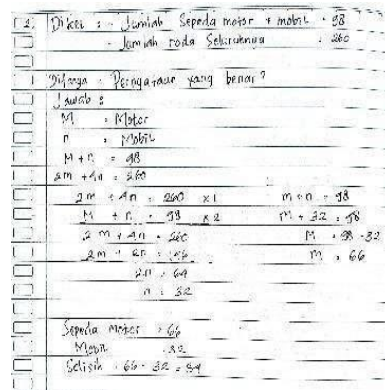 2 Diket : - Jumlah Sepeda motor + mobil : 98
- Jumlah roda Seluruhnya : 260
Ditanya : Pernyataan yang benar ?
Jawab :
M : Motor
n : Mobil
M + n = 98
2m + 4n = 260
2m + 4n = 260 x1
M + n = 98 x2
2m + 4n = 260
2m + 2n = 196
2n = 64
n = 32
m + n = 98
m + 32 = 98
M = 98 - 32
m = 66
Sepeda motor = 66
Mobil = 32
Selisih = 66 - 32 = 34